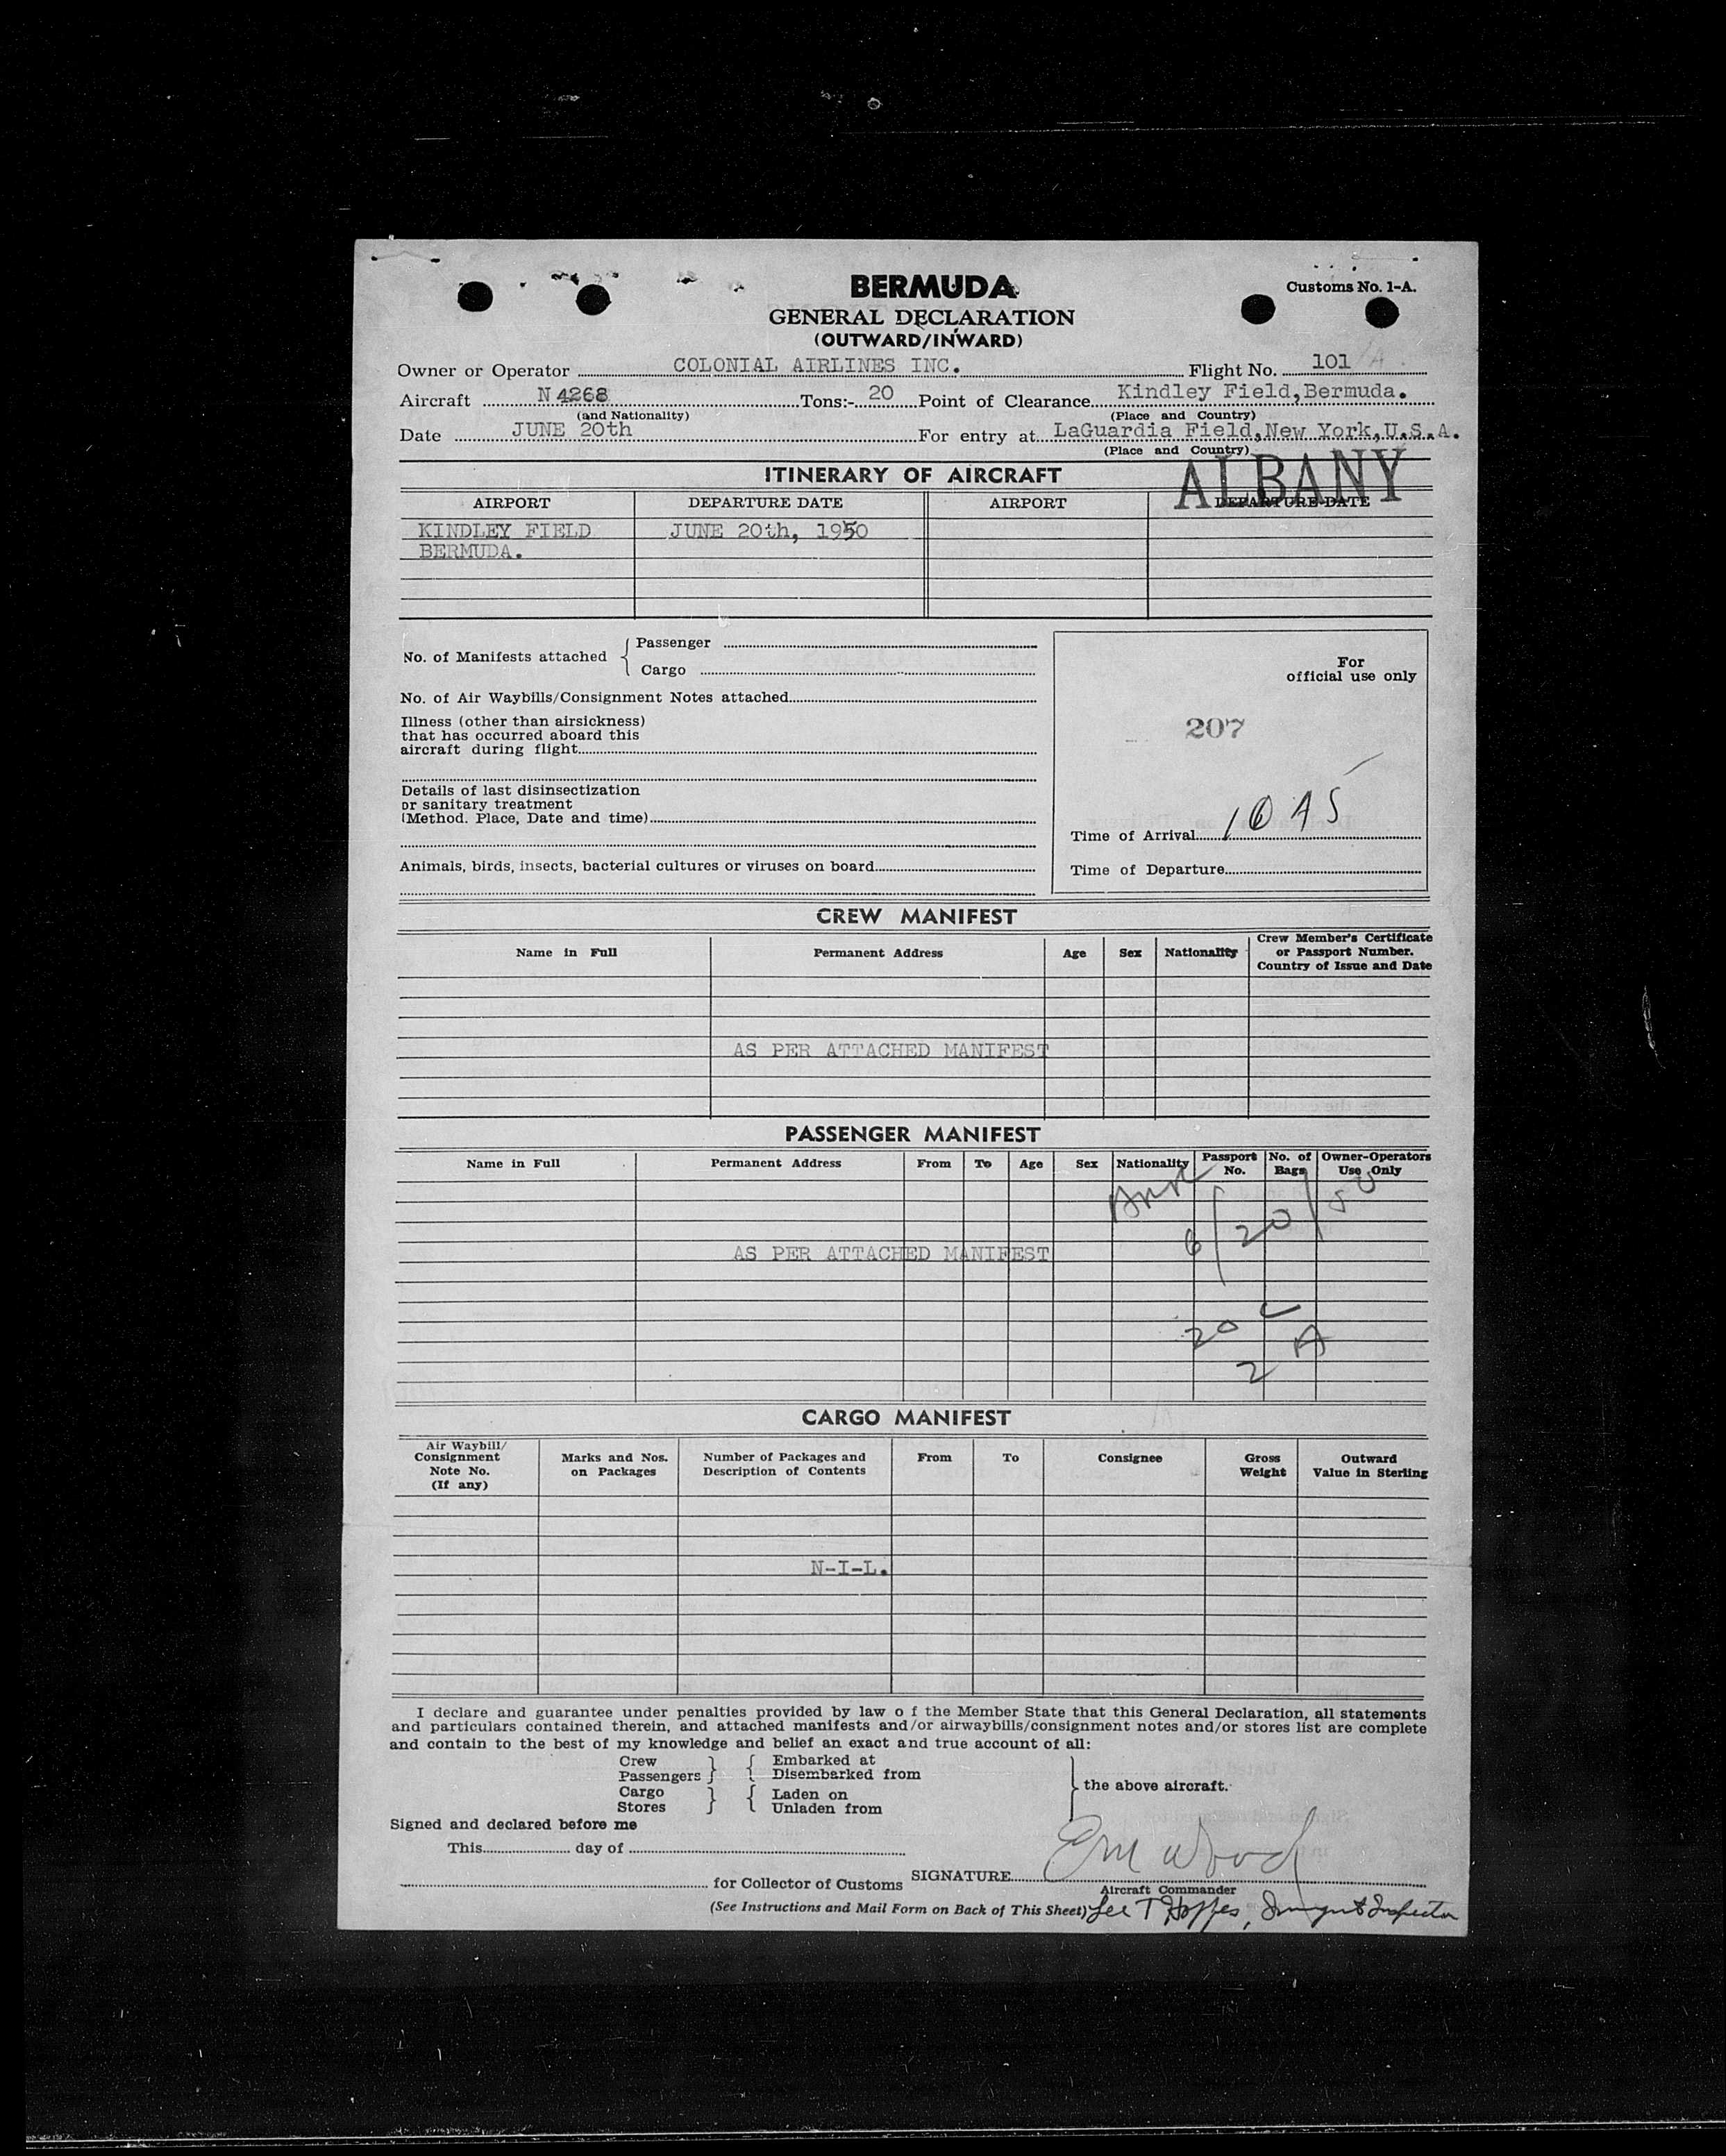 BERMUDA
Customs No. 1-A.
GENERAL DECLARATION
(OUTWARD/INWARD)
Owner or Operator COLONIAL AIRLINES INC. Flight No. 101/A.
Aircraft N 4268 Tons:- 20 Point of Clearance Kindley Field,Bermuda.
(and Nationality) (Place and Country)
Date JUNE 20th For entry at LaGuardia Field,New York,U.S.A.
(Place and Country)
ALBANY
ITINERARY OF AIRCRAFT
AIRPORT DEPARTURE DATE AIRPORT DEPARTURE DATE
KINDLEY FIELD JUNE 20th, 1950
BERMUDA.
No. of Manifests attached { Passenger
Cargo
For
official use only
No. of Air Waybills/Consignment Notes attached
Illness (other than airsickness)
that has occurred aboard this
aircraft during flight
207
Details of last disinsectization
or sanitary treatment
(Method. Place, Date and time)
Time of Arrival
Animals, birds, insects, bacterial cultures or viruses on board
Time of Departure
CREW MANIFEST
Name in Full Permanent Address Age Sex Nationality Crew Member's Certificate
or Passport Number.
Country of Issue and Date
AS PER ATTACHED MANIFEST
PASSENGER MANIFEST
Name in Full Permanent Address From To Age Sex Nationality Passport No. No. of Bags Owner-Operators Use Only
6/20/50
AS PER ATTACHED MANIFEST
20 C
2 A
CARGO MANIFEST
Air Waybill/
Consignment
Note No.
(If any)
Marks and Nos.
on Packages
Number of Packages and
Description of Contents
From To Consignee
Gross
Weight
Outward
Value in Sterling
N-I-L.
I declare and guarantee under penalties provided by law o f the Member State that this General Declaration, all statements
and particulars contained therein, and attached manifests and/or airwaybills/consignment notes and/or stores list are complete
and contain to the best of my knowledge and belief an exact and true account of all:
Crew } { Embarked at
Passengers } { Disembarked from
Cargo } { Laden on
Stores } { Unladen from
} the above aircraft.
Signed and declared before me
This day of
for Collector of Customs SIGNATURE E M Wood
Aircraft Commander
(See Instructions and Mail Form on Back of This Sheet) Lee T Hoffes, Immigrant Inspector